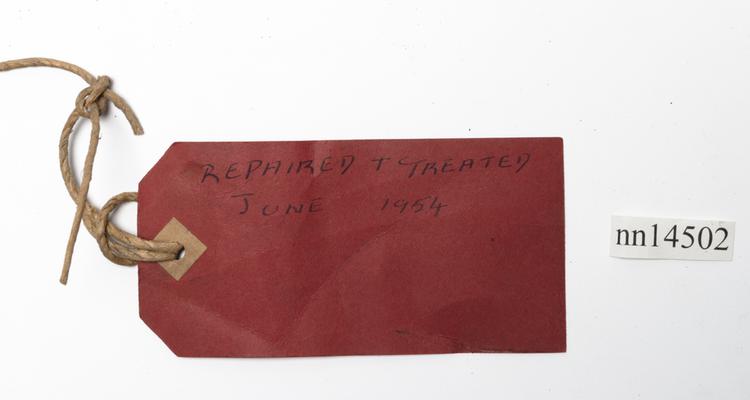 REPAIRED + TREATED
JUNE 1954
nn14502